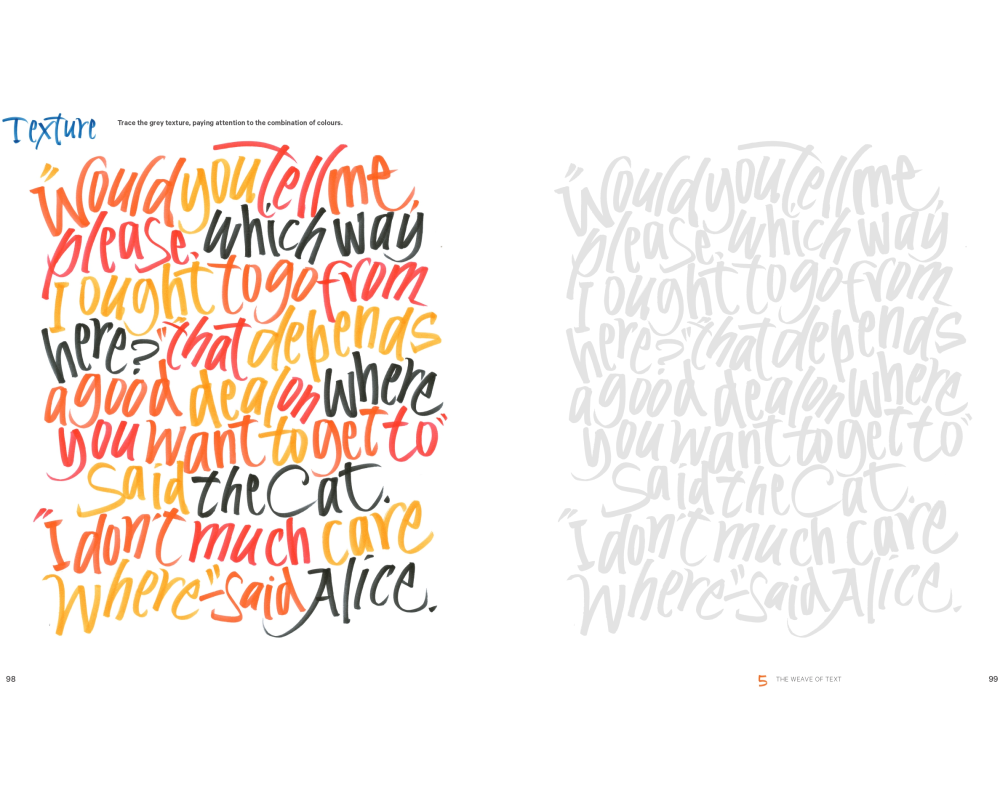 Texture
Trace the grey texture, paying attention to the combination of colours.
"Would you tell me,
please, which way
I ought to go from
here?" "that depends
a good deal on where
you want to get to"
said the Cat.
"I don't much care
where-" said Alice.
"Would you tell me,
please, which way
I ought to go from
here?" "that depends
a good deal on where
you want to get to"
said the Cat.
"I don't much care
where-" said Alice.
98
5 THE WEAVE OF TEXT
99